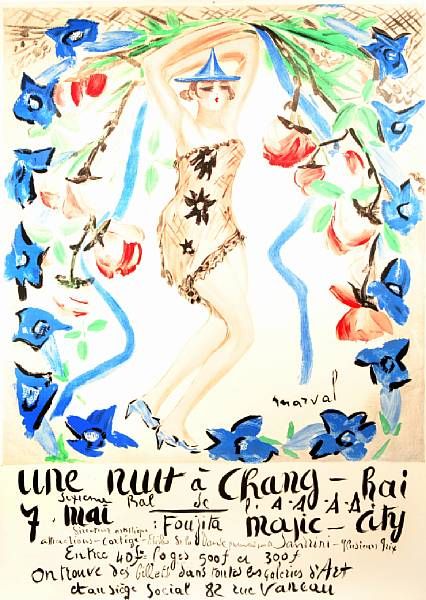 marval
une nuit à Chang-hai
Sixième Bal de l'A·A·A·A
7 mai Foujita magic-city
Direction artistique :
attractions - Cortège -
Entrée 40f. Loges 500f et 300f
On trouve des billets dans toutes les Galeries d'Art
et au siège Social 82 rue Vaneau